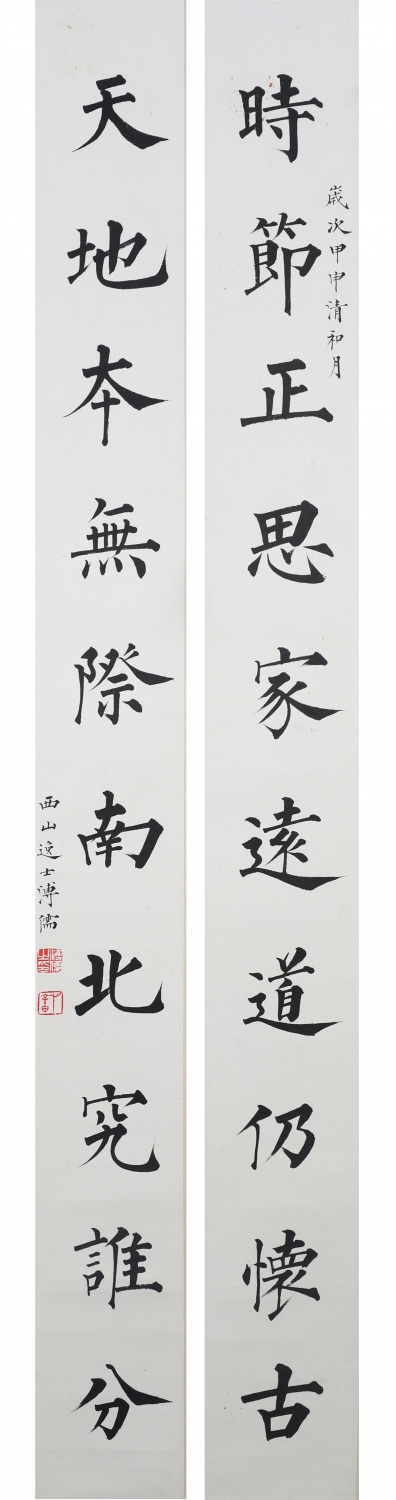 時節正思家遠道仍懷古
歲次甲申清和月
天地本無際南北究誰分
西山逸士溥儒